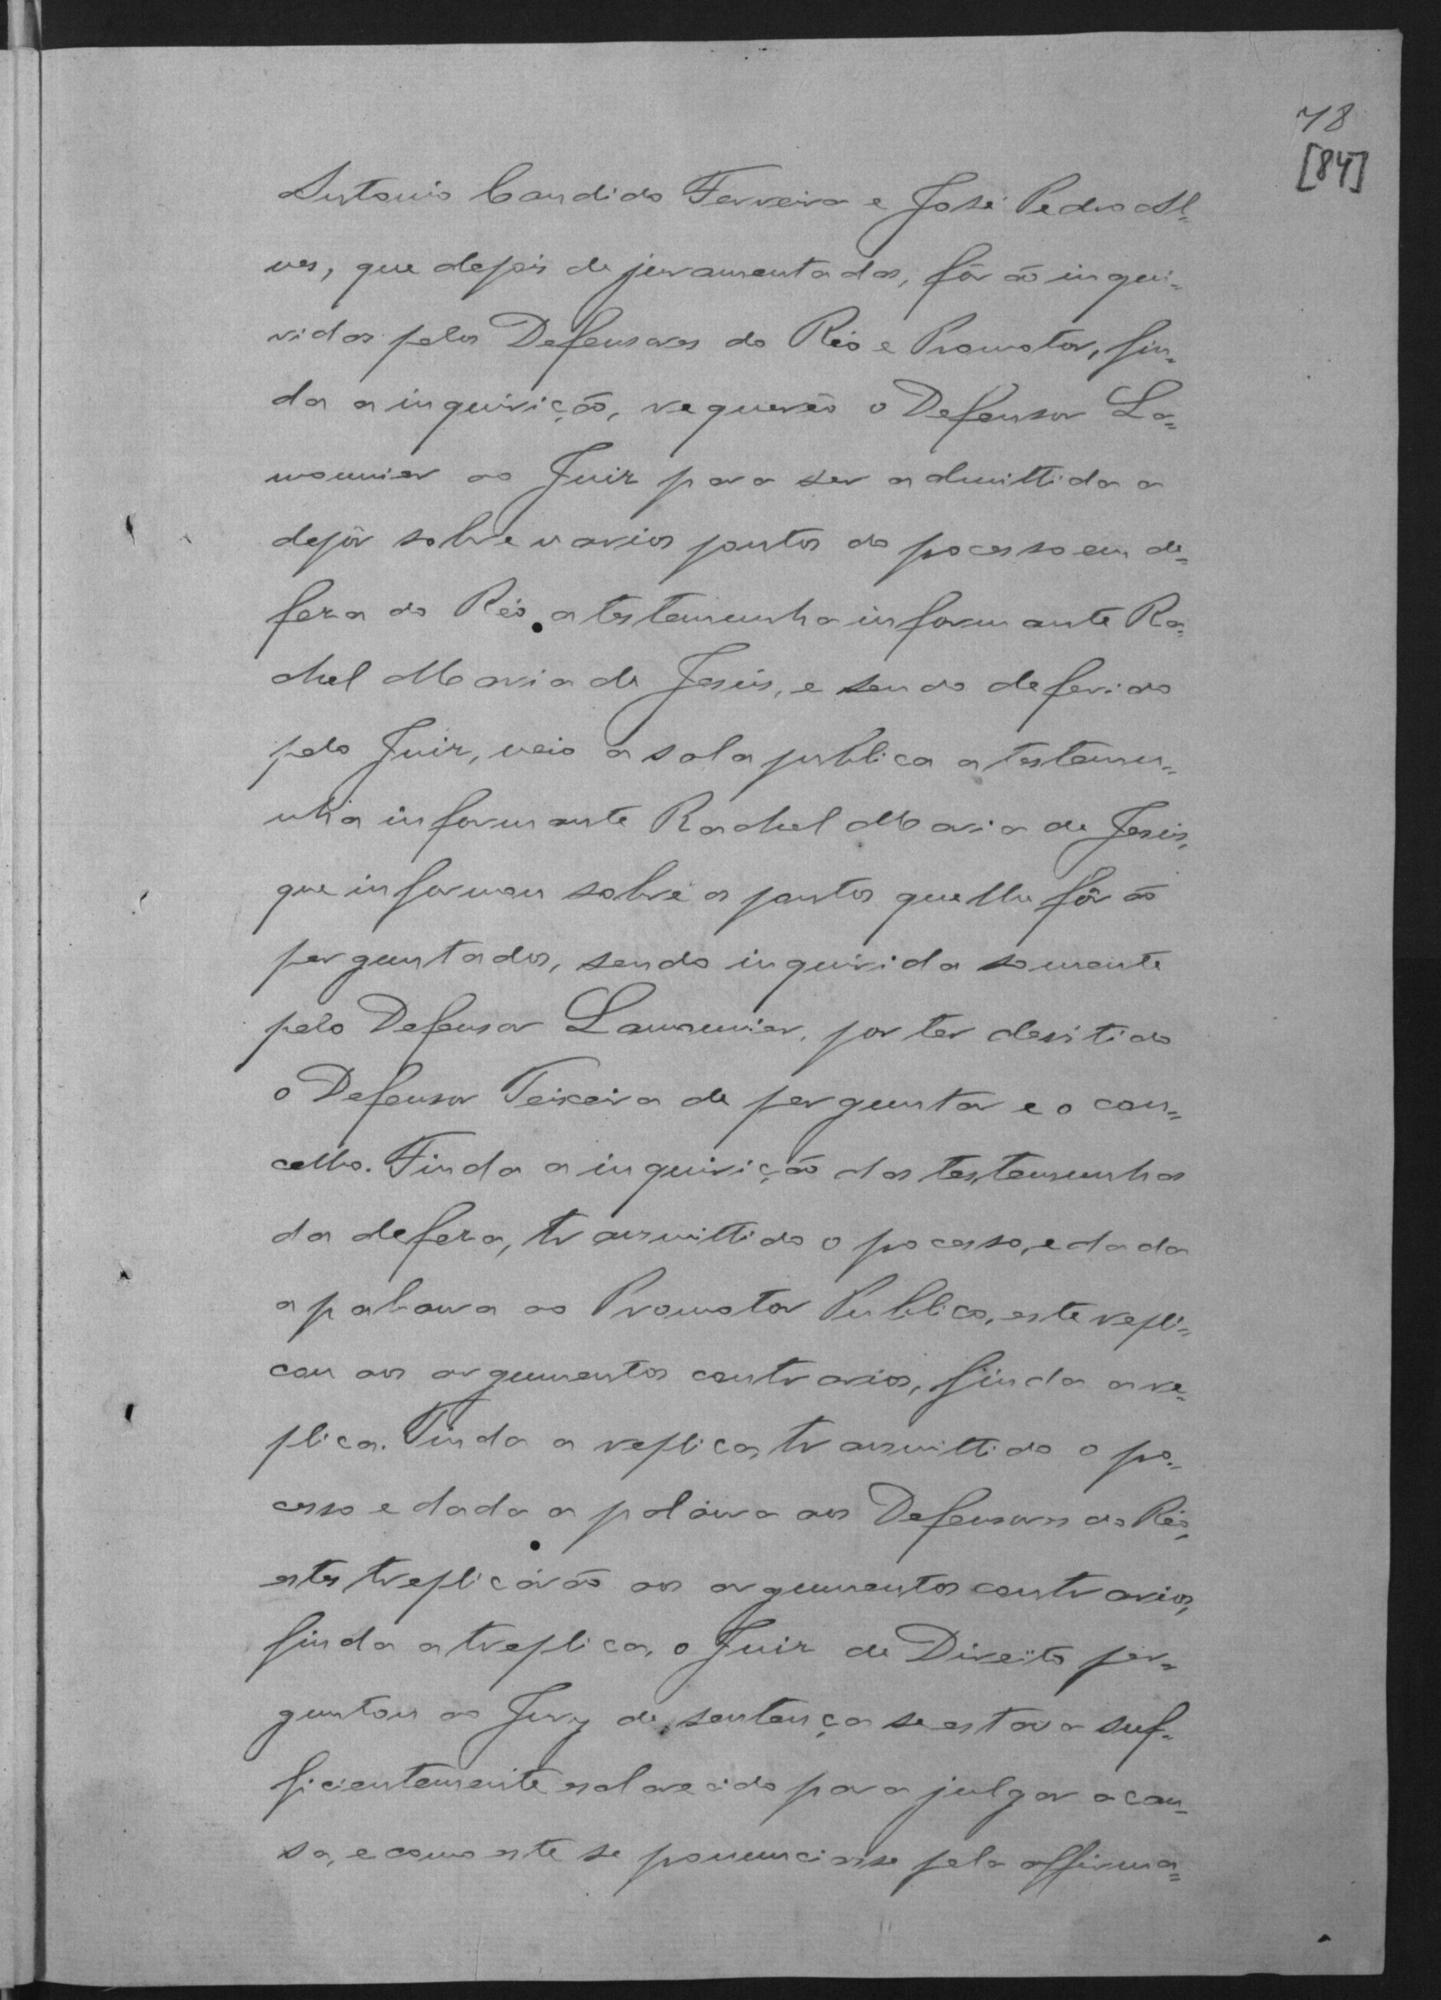 78
[84]
Antonio Candido Ferreira e José Pedro Al=
ves, que depois de juramentados, fôrão inqui=
ridos pelos Defensores do Réo e Promotor, fin=
da a inquirição, requereo o Defensor La=
mounier ao Juiz para ser admittida a
depôr sobre varios pontos do pocesso em de=
feza do Réo a testemunha informante Ra=
chel Maria de Jesús, e sendo deferido
pelo Juiz, veio a sala publica a testemu=
nha informante Rachel Maria de Jesús,
que informou sobre os pontos que lhe fôrão
perguntados, sendo inquirida somente
pelo Defensor Lamounier, por ter desitido
o Defensor Teixeira de perguntar e o con=
celho. Finda a inquirição das testemunhas
da defeza, transmittido o pocesso, e dada
a palavra ao Promotor Publico, este repli=
cou aos argumentos contrarios, finda a re=
plica. Finda a replica, transmittido o po=
cesso e dada a palavra aos Defensores do Réo,
estes treplicárão aos argumentos contrarios,
finda a treplica, o Juiz de Direito per=
guntou ao Jury de sentença se estava suf=
ficientemente esclarecido para julgar a cau=
sa, e como este se ponunciasse pela affirma=